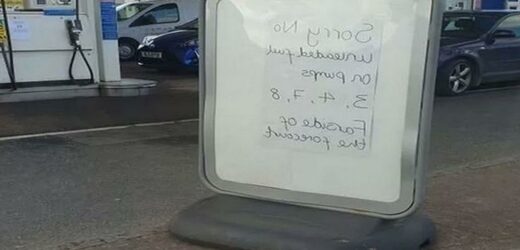 Sorry No
unleaded fuel
on pumps
3, 4, 7, 8
Farside of
the forecourt